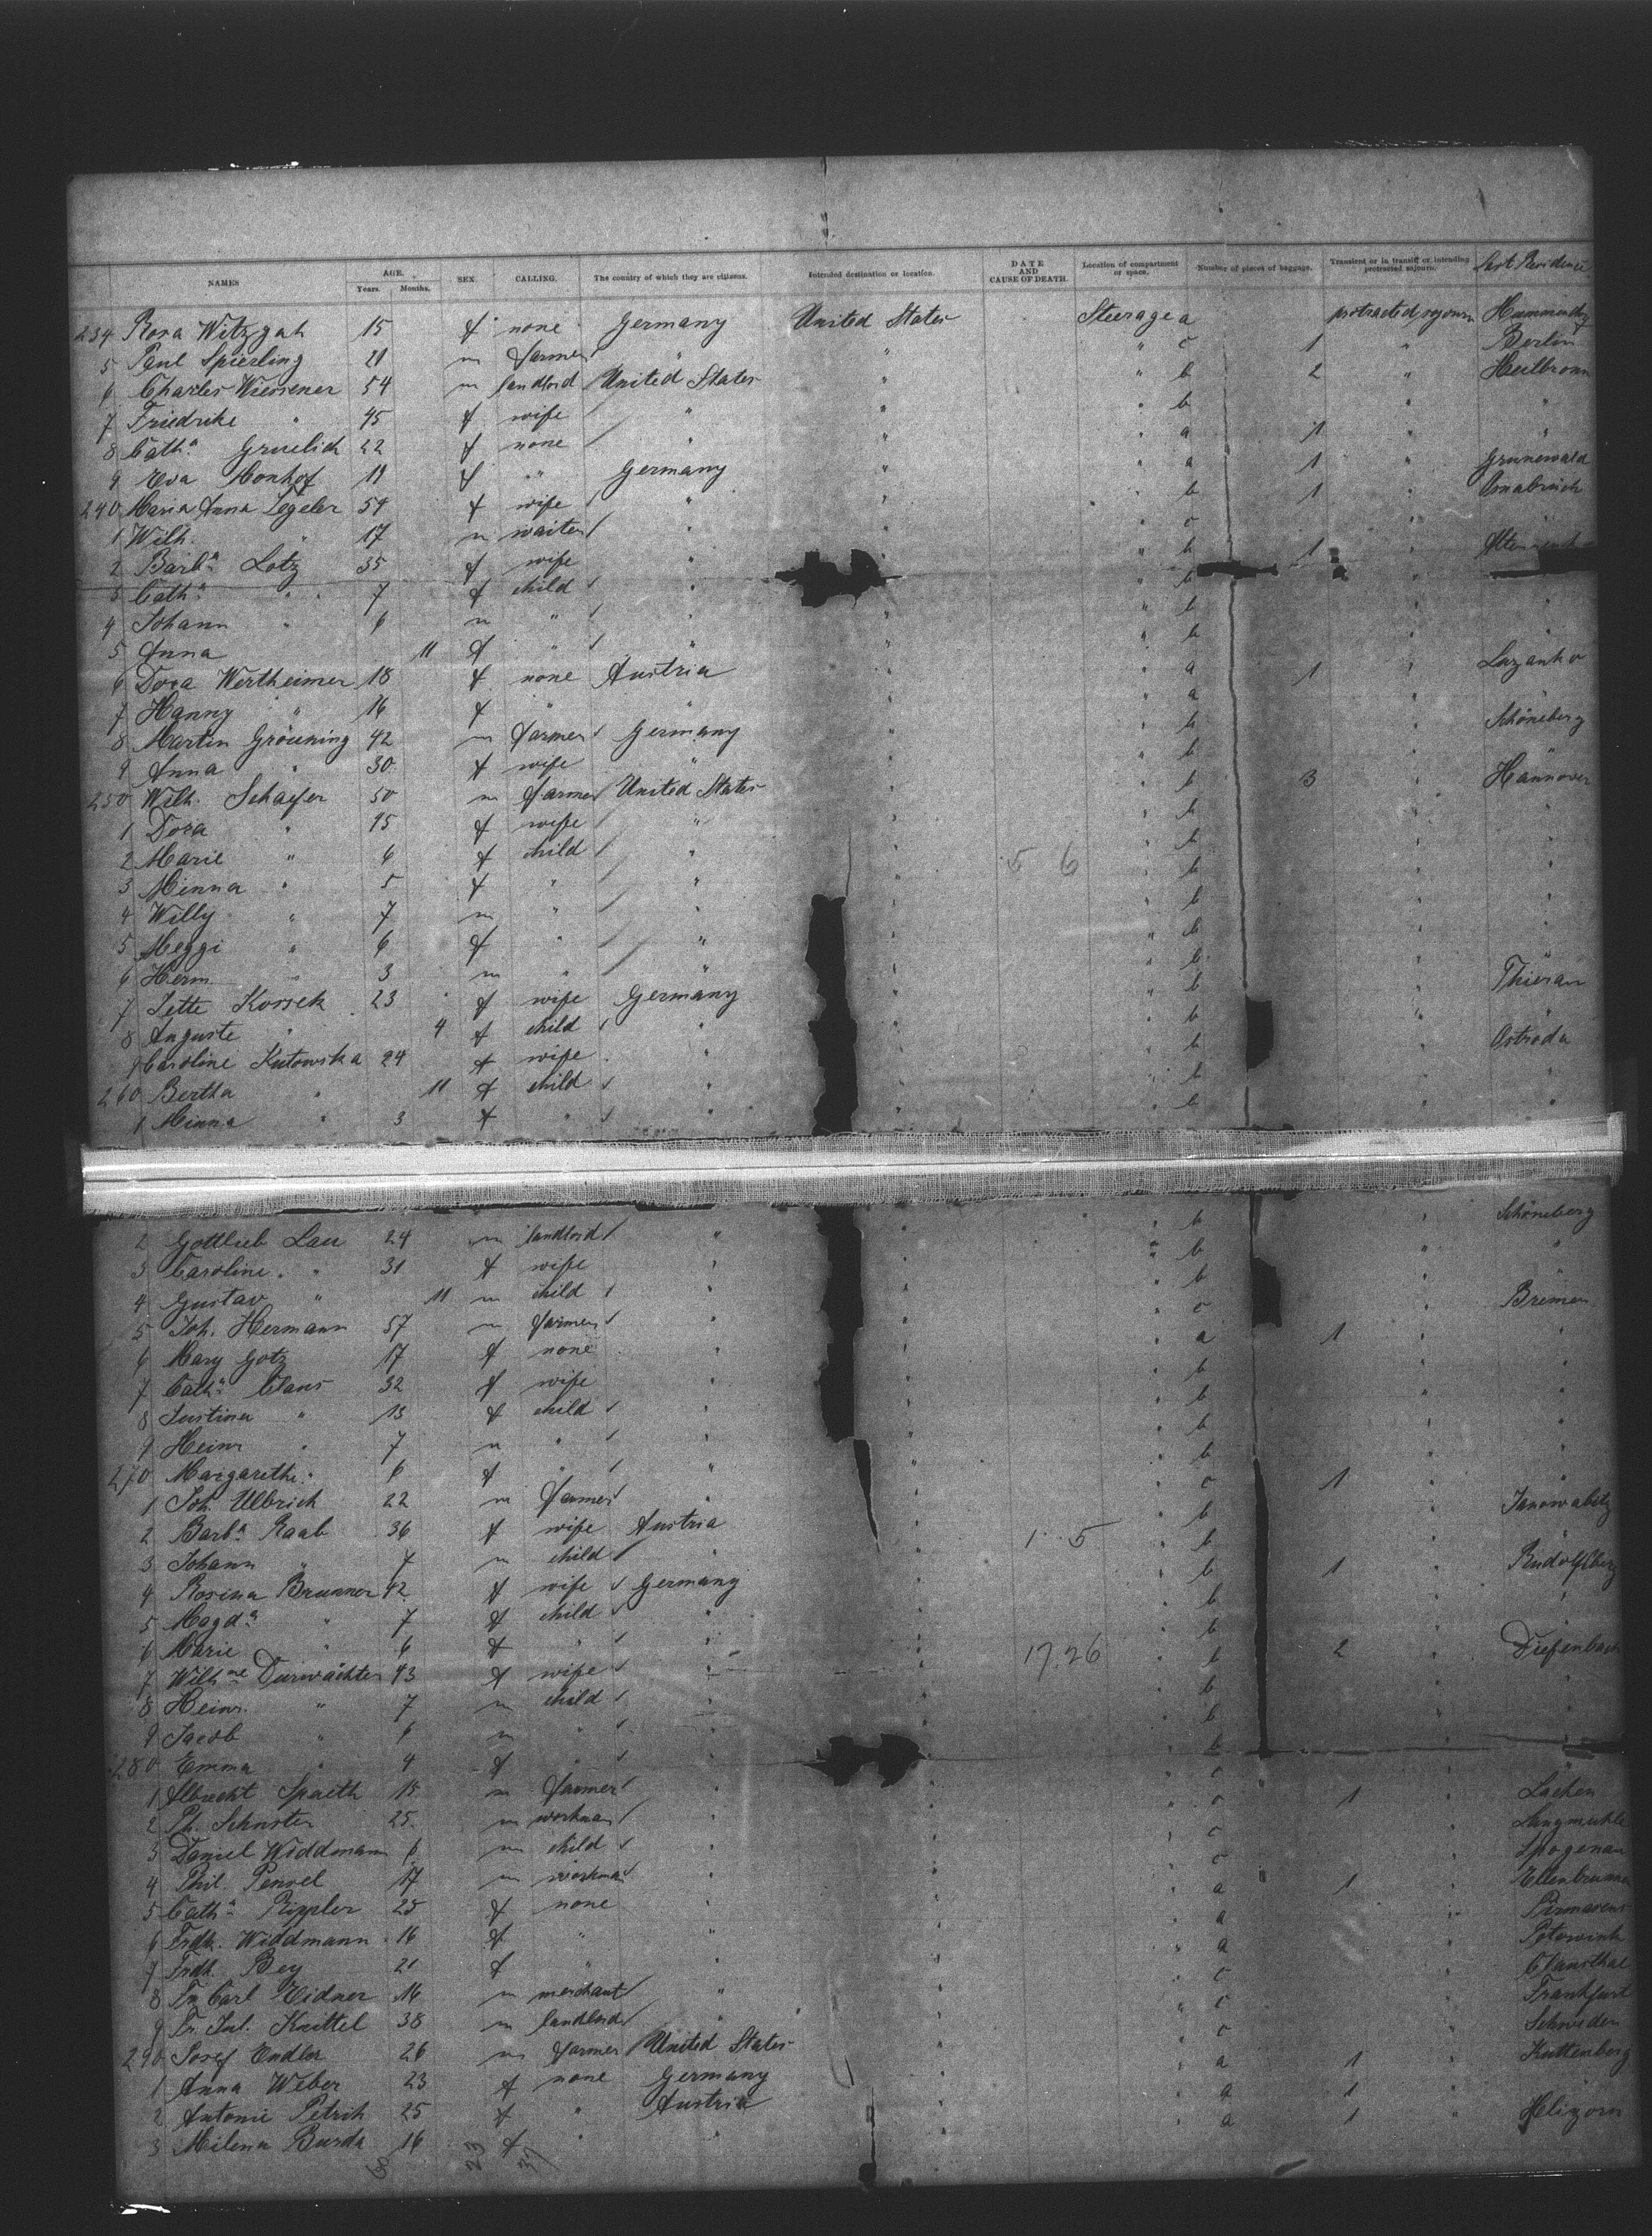 NAMES AGE. Years. Months. SEX. CALLING. The country of which they are citizens. Intended destination or location. DATE AND CAUSE OF DEATH. Location of compartment or space. Number of pieces of baggage. Transient or in transit or intending protracted sojourn. Last Residence
234 Rosa Witzgah 15 f none Germany United States Steerage a protracted sojourn
5 Paul Spierling 21 m farmer " " " c 1 " Berlin
6 Charles Wiessener 54 m landlord United States " " b 2 " Heilbronn
7 Friedrike " 45 f wife " " " b " "
8 Cath.a Gruelich 22 f none " " " a 1 " "
9 Eva Honhof 19 f " Germany " " a 1 " Grunewald
240 Maria Anna Tegeler 54 f wife " " " b 1 " Osnabrück
1 Wilh. " 17 m waiter " " " c " "
2 Barb.a Lotz 35 f wife " " " b 1 "
3 Cath.a " 7 f child " " b " "
4 Johann " 6 m " " " " b " "
5 Anna " 11 f " " " " b " "
6 Dora Wertheimer 18 f none Austria " " a 1 "
7 Hanny " 16 f " " " " a " "
8 Martin Gröuning 42 m farmer Germany " " b " Schöneberg
9 Anna " 30 f wife " " " b " "
250 Wilh. Schaefer 50 m farmer United States " " b 3 " Hannover
1 Dora " 45 f wife " " " b " "
2 Marie " 6 f child " " 5 6 " b " "
3 Minna " 5 f " " " " b " "
4 Willy " 7 m " " " " b " "
5 Meggi " 6 f " " " " b " "
6 Herm. " 3 m " " " " b " "
7 Jette Korsek 23 f wife Germany " " b "
8 Auguste " 4 f child " " " b " "
9 Caroline Kutowska 24 f wife " " " b " Ostroda
260 Bertha " 11 f child " " " b " "
1 Minna " 3 f " " " " b " "
2 Gottlieb Lau 24 m landlord " " " b " Schöneberg
3 Caroline " 31 f wife " " " b " "
4 Gustav " 11 m child " " " b " "
5 Joh. Hermann 57 m farmer " " " c 1 " Bremen
6 Mary Gotz 17 f none " " " a " "
7 Cath.a Claus 32 f wife " " " b " "
8 Justina " 13 f child " " " b " "
9 Heinr " 7 m " " " " b " "
270 Margarethe " 6 f " " " " b " "
1 Joh. Ullrich 22 m farmer " " " c 1 " "
2 Barb.a Raab 36 f wife Austria " 1 5 " b "
3 Johann " 7 m child " " " b " "
4 Rosina Brunner 42 f wife Germany " " b 1 " Rudolfsberg
5 Magd.a " 7 f child " " " b " "
6 Marie " 6 f " " " 17.26 " b " "
7 Wilh.ne Durwächter 43 f wife " " " b 2 " Diefenbach
8 Heinr. " 7 m child " " " b " "
9 Jacob " 6 m " " " " b " "
280 Emma " 4 f " " " " b " "
1 Albrecht Spaeth 15 m farmer " " " c 1 " Lachen
2 Ph. Schuster 25 m workman " " " c " Langmuhle
3 Daniel Widdmann 6 m child " " " c "
4 Phil. Pensel 17 m workman " " " c 1 "
5 Cath.a Rippler 25 f none " " " a " Pirmasens
6 Frdk. Widdmann 16 f " " " " a "
7 Frdk. Bey 21 f " " " " a " Clausthal
8 Carl Eidner 16 m merchant " " " c " Frankfurt
9 Jul. Knittel 38 m landlord " " " c " Schweden
290 Josef Endler 26 m farmer United States " " c 1 " Kuttenberg
1 Anna Weber 23 f none Germany " " a 1 " "
2 Antonie Petrik 25 f " Austria " " a 1 "
3 Milena Burda 16 f " " " " a " "
60 23 37